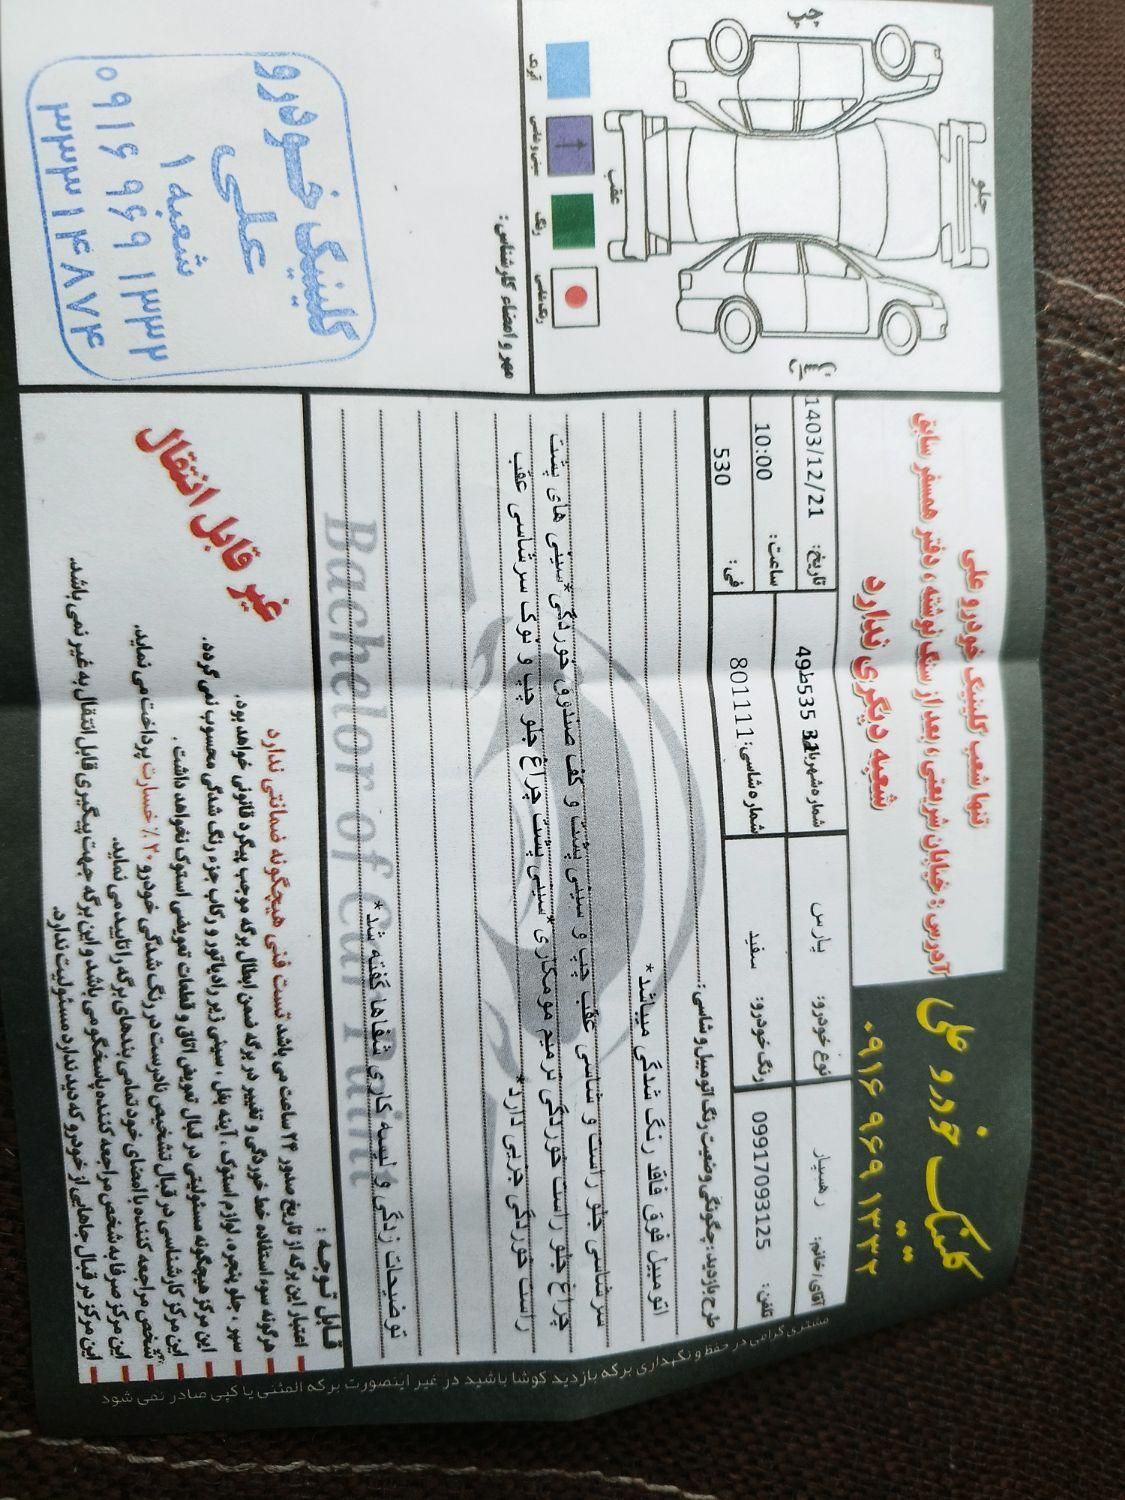 تنها شعب کلینیک خودرو علی
آدرس : خیابان شریعتی ، بعد از سنگ نوشته ، دفتر همسفر سابق
شعبه دیگری ندارد
کلینیک خودرو علی
۰۹۱۶ ۹۶۹ ۱۳۳۲
آقای/خانم: رهسپار
نوع خودرو: پارس
شماره شهربانی: 49ط535
تاریخ: 1403/12/21
تلفن: 09917093125
رنگ خودرو: سفید
شماره شاسی: 801111
ساعت: 10:00
فی: 530
طرح بازدید: چگونگی وضعیت رنگ اتومبیل و شاسی :
اتومبیل فوق فاقد رنگ شدگی میباشد*
سرشاسی جلو راست و شاسی عقب چپ و سینی پشت و کف صندوق خوردگی*سینی های پشت
چراغ جلو راست خوردگی ترمیم مومکاری*سینی پشت چراغ جلو چپ و نوک سرشاسی عقب
راست خوردگی جزیی دارد*
توضیحات زدگی و لیسه کاری شفاها گفته شد*
Bachelor of Car Paint
جلو
عقب
چپ
آبرنگ
سینی و شاسی
رنگ
مهر و امضاء کارشناس:
کلینیک خودرو
علی
شعبه ۱
۰۹۱۶ ۹۶۹ ۱۳۳۲
۳۳۳۱۴۸۷۴
قابل توجه :
اعتبار این برگه از تاریخ صدور ۲۴ ساعت می باشد تست فنی هیچگونه ضمانتی ندارد
هرگونه سوء استفاده خط خوردگی و تغییر در برگه ضمن ابطال برگه موجب پیگرد قانونی خواهد بود.
سپر ، جلو پنجره، لوازم استوک ، آینه بغل ، سینی زیر رادیاتور و رکاب جزء رنگ شدگی محسوب نمی گردد.
این مرکز هیچگونه مسئولیتی در قبال تعویض اتاق و قطعات تعویضی استوک نخواهد داشت .
این مرکز کارشناسی در قبال تشخیص نادرست در رنگ شدگی خودرو ۲۰٪ خسارت پرداخت می نماید.
شخص مراجعه کننده با امضای خود تمامی بندهای برگه را تایید می نماید.
این مرکز صرفا به شخص مراجعه کننده پاسخگو می باشد و این برگه جهت پیگیری قابل انتقال به غیر نمی باشد.
این مرکز در قبال جاهایی از خودرو که دید ندارد مسئولیت ندارد.
غیر قابل انتقال
مشتری گرامی در حفظ و نگهداری برگه بازدید کوشا باشید در غیر اینصورت برگه المثنی یا کپی صادر نمی شود